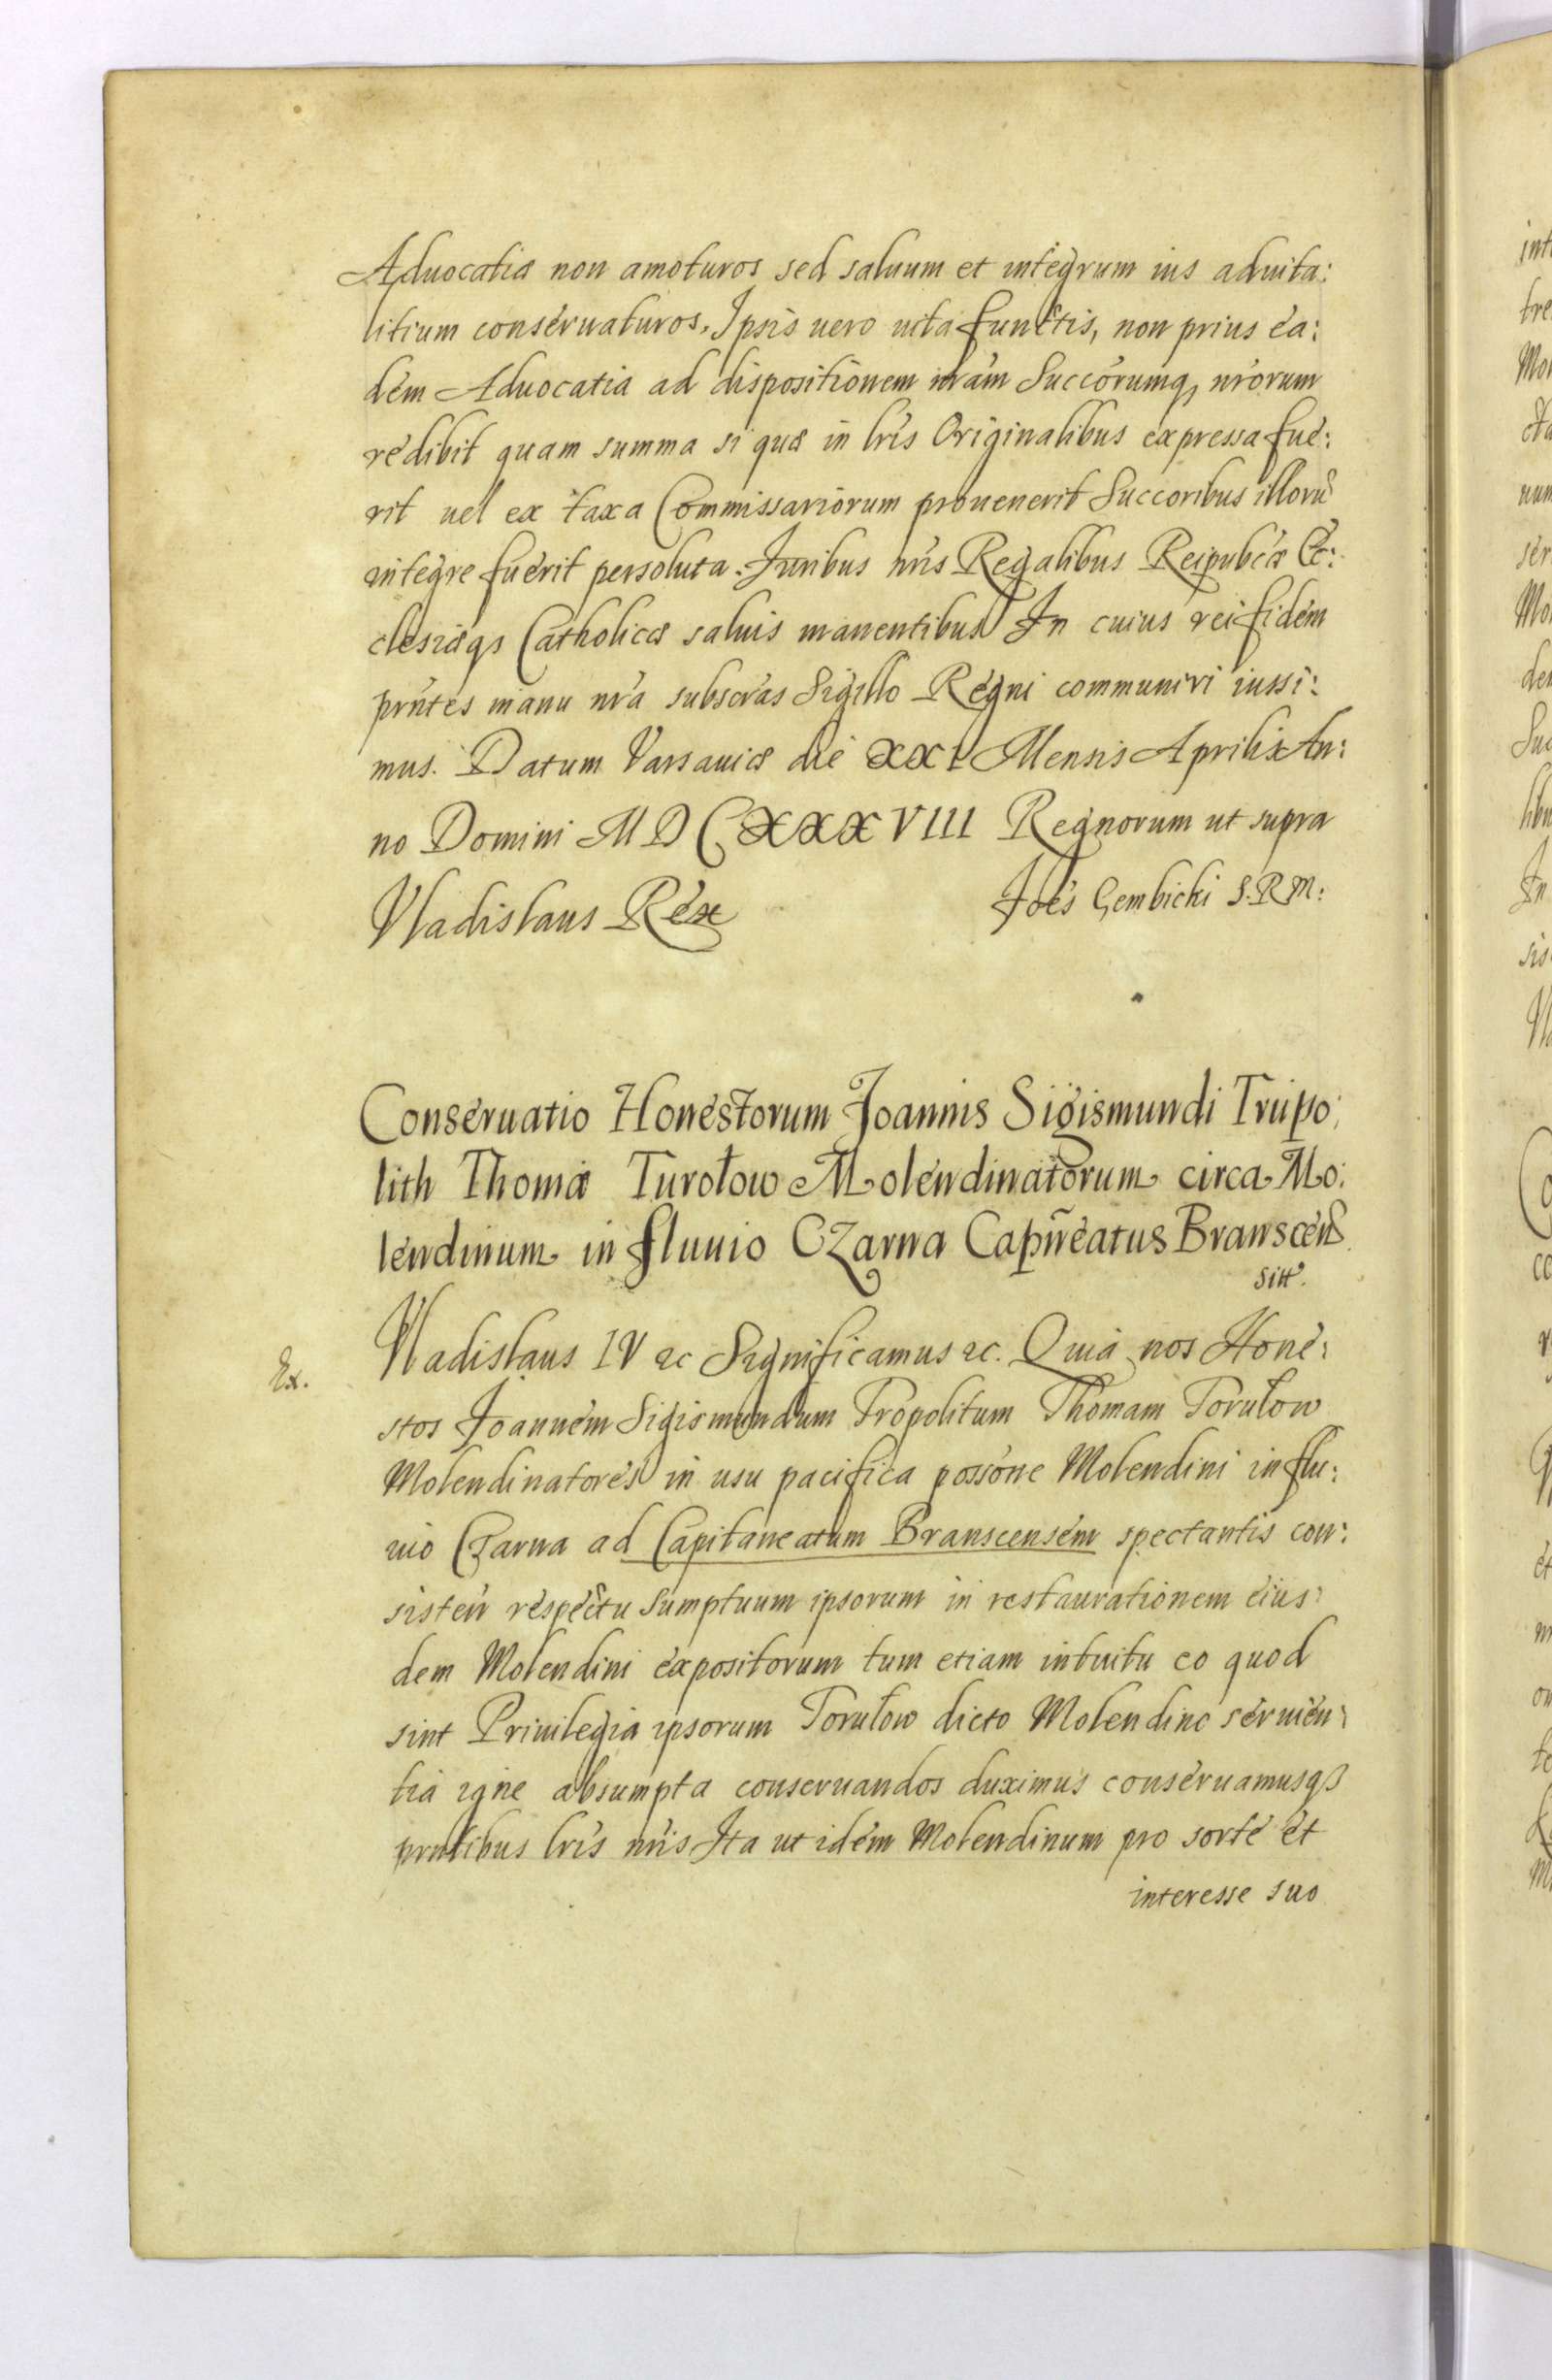 Aduocatiæ non amoturos sed saluum et integrum ius aduita:
litium conseruaturos. Ipsis uero uita functis, non prius ea:
dem Aduocatia ad dispositionem nrām Succōrumq, nrōrum
redibit quam summa si quæ in lrīs Originalibus expressa fue:
rit uel ex taxa Commissariorum prouenerit Succoribus illorū
integre fuerit persoluta. Juribus nrīs Regalibus Reipubcæ Ec:
clesiæqs Catholicæ saluis manentibus In cuius rei fidem
prntes manu nrā subscrās Sigillo Regni communiri iussi:
mus. Datum Varsauiæ die XXI Mensis Aprilis An:
no Domini MDCXXXVIII Regnorum ut supra
Vladislaus Rex
Joēs Gembicki S.R.M:
Conseruatio Honestorum Joannis Sigismundi Tripo:
lith Thomæ Turołow Molendinatorum circa Mo:
lendinum in fluuio Czarna Capñeatus Branscen
sitt.
Ex.
Vladislaus IV ac Significamus ac. Quia nos Hone:
stos Joannem Sigismundum Tropolitum Thomam Torułow
Molendinatores in usu pacifica possōne Molendini in flu:
uio Czarna ad Capitaneatum Branscensem spectantis con:
sisten respectu Sumptuum ipsorum in restaurationem eius:
dem Molendini expositorum tum etiam intuitu eo quod
sint Priuilegia ipsorum Torułow dicto Molendino seruien:
tia igne absumpta conseruandos duximus conseruamusqs
prntibus lrīs nrīs Ita ut idem Molendinum pro sorte et
interesse suo